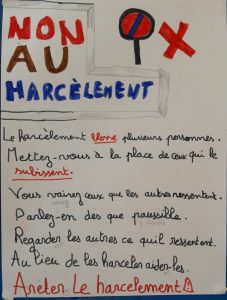 NON
AU
HARCÈLEMENT
Le harcèlement blone plusieurs personnes.
Mettez-vous à la place de ceux qui le
subissent.
Vous vairez ceux que les autres ressentent.
Parlez-en des que paussible.
Regarder les autres ce qu'il ressentent.
Au lieu de les harceler aider-les.
Areter Le harcelement